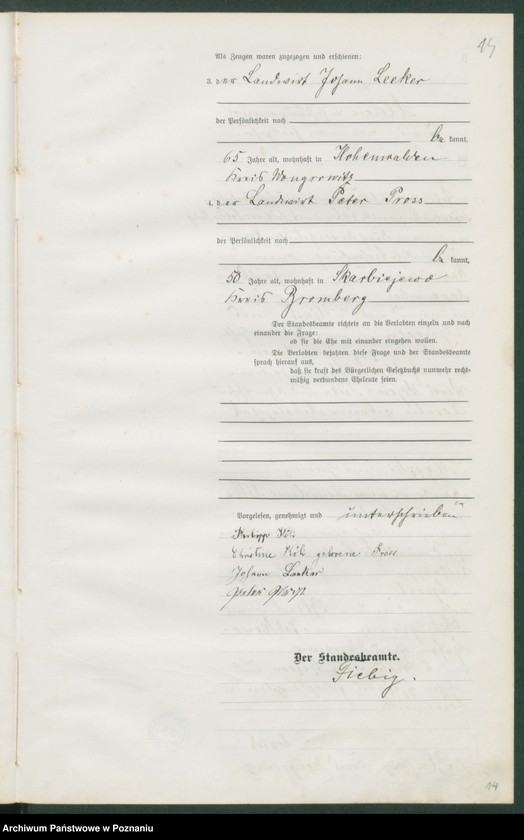 14
Als Zeugen waren zugezogen und erschienen:
3. der Landwirt Johann Leeker
der Persönlichkeit nach
be kannt,
65 Jahre alt, wohnhaft in Hohenwalden
Kreis Wongrowitz
4. der Landwirt Peter Pross
der Persönlichkeit nach
be kannt,
50 Jahre alt, wohnhaft in Skarbiejewo
Kreis Bromberg
Der Standesbeamte richtete an die Verlobten einzeln und nach
einander die Frage:
ob sie die Ehe mit einander eingehen wollen.
Die Verlobten bejahten diese Frage und der Standesbeamte
sprach hierauf aus,
daß sie kraft des Bürgerlichen Gesetzbuchs nunmehr recht-
mäßig verbundene Eheleute seien.
Vorgelesen, genehmigt und unterschrieben
Philipp
Christine geborene Pross
Johann Leeker
Peter Pross
Der Standesbeamte.
Fiebig.
14
Archiwum Państwowe w Poznaniu